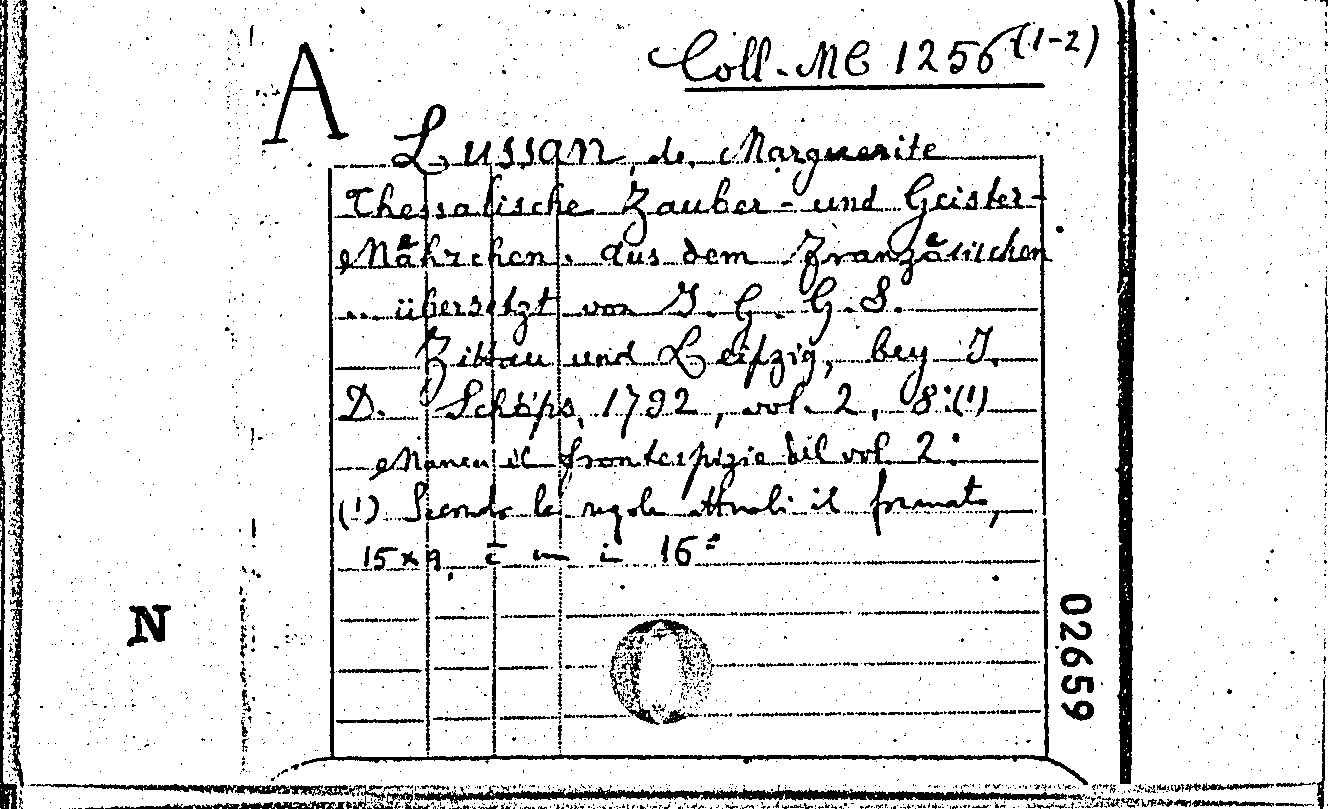 A
Coll. MC 1256 (1-2)
Lussan, de, Marguerite
Thessalische Zauber- und Geister-
Måhrchen. Aus dem Franzåsischen
... übersetzt von J. G. G. S.
Zittau und Leipzig, bey J.
D. Schöps, 1792, vol. 2, 8º (1)
Manca il frontespizio del vol. 2º
(1) Secondo le regole attuali il formato,
15x9, è un in 16º
N
02659